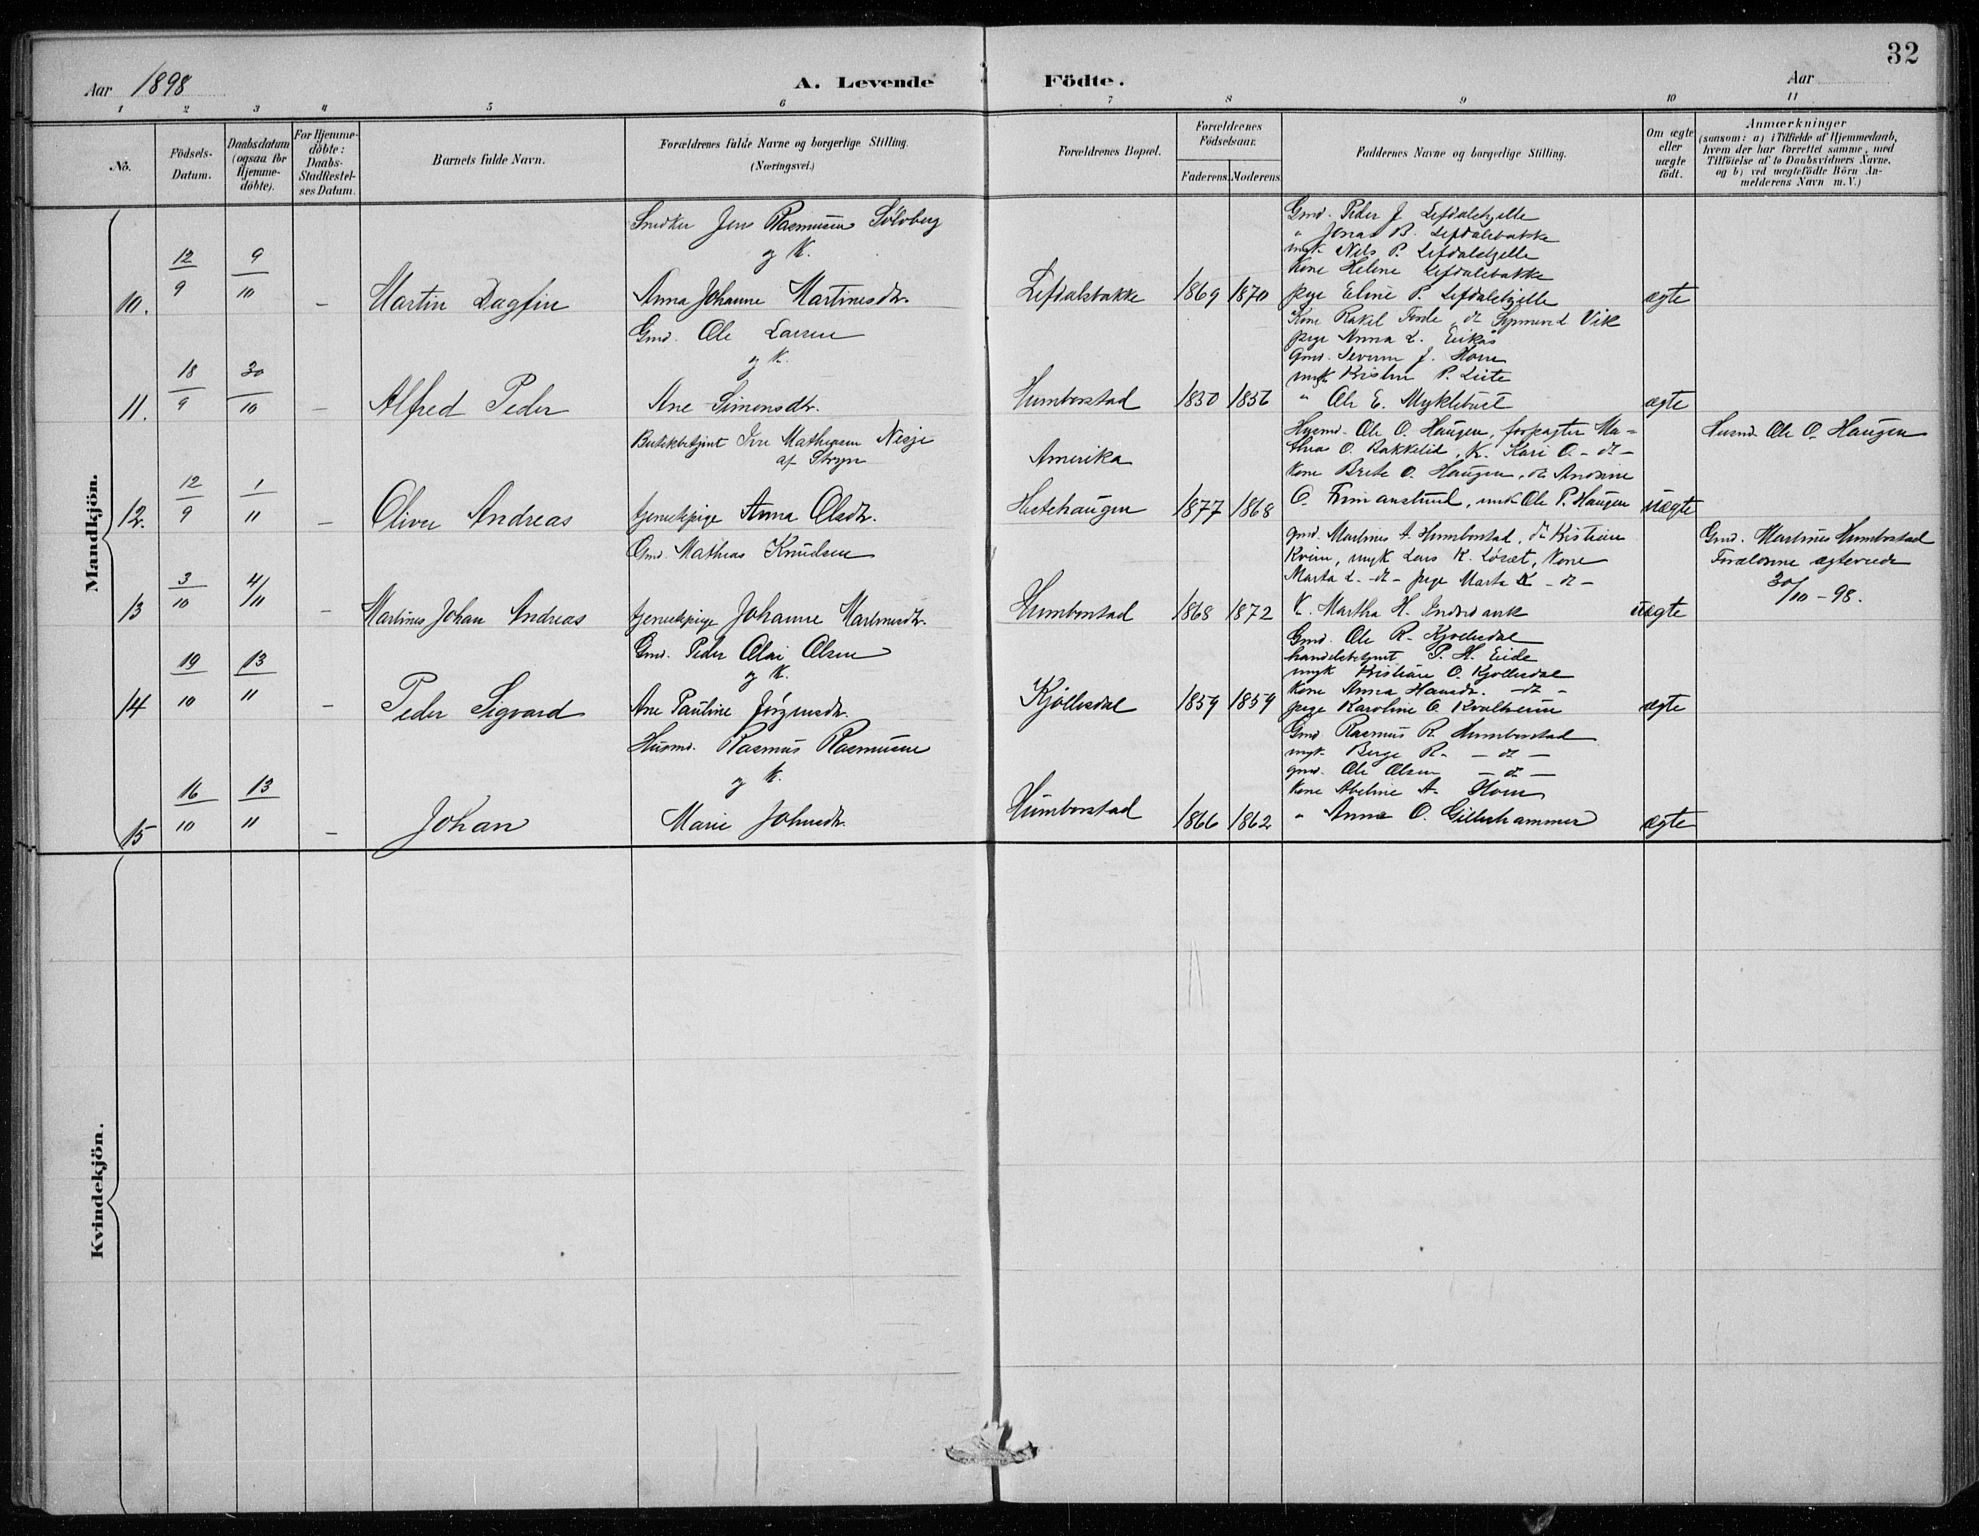 32
Aar 1898
A. Levende Födte.
Aar
1 2 3 4 5 6 7 8 9 10 11
No.
Födsels-Datum.
Daabsdatum (ogsaa for Hjemme-döbte).
For Hjemme-döbte: Daabs-Stadfæstel-ses Datum.
Barnets fulde Navn.
Forældrenes fulde Navne og borgerlige Stilling.
(Næringsvei.)
Forældrenes Bopæl.
Forældrenes Födselsaar.
Faderens. Moderens.
Faddernes Navne og borgerlige Stilling.
Om ægte eller uægte födt.
Anmærkninger
(saasom: a) i Tilfælde af Hjemmedaab,
hvem der har forrettet samme, med
Tilföielse af to Daabsvidners Navne,
og b) ved uægtefödte Börn An-
melderens Navn m. V.)
Mandkjön.
10. 12/9 9/10 – Martin Dagfin
Snedker Jens Rasmussen Sölvberg
og K.
Anna Johanne Martinusdtr.
Lefdalsbakke 1869 1870
Gmd. Peder J. Lefdalshjelle
" Jonas B. Lefdalsbakke
ungk. Nils P. Lefdalshjelle
Kone Heline Lefdalsbakke
pige Eline P. Lefdalshjelle
ægte
11. 18/9 30/10 – Alfred Peder
Gmd. Ole Larsen
og K.
Ane Simonsdtr.
Humborstad 1850 1856
Kone Rakel
Vik
pige Anna L. Eikås
Gmd. Severin J. Hom
ungk P. Leite
" Ole E. Myklebust
ægte
12. 12/9 1/11 – Oliver Andreas
Mathiesen Nesje
af Stryn
tjenestepige Anna Olsdtr.
Amerika
1877 1868
Husmd. Ole O. Haugen, forpagter Ma-
thias O. Bakkelid, K. Kari O. – d –
Kone Brete O. Haugen, do Andrine
O. ungk Ole P. Haugen
uægte
Husmd. Ole O. Haugen
13 3/10 4/11 – Martines Johan Andreas
Gmd. Mathias Knudsen
tjenestepige Johanne Martinusdtr.
Humborstad 1868 1872
gmd. Martinus A. Humborstad, do Kristian
ungk Lars K. Löset, Kone
Marta L. – d – pige Marta K – d –
K. Martha H.
uægte
Gmd. Martinus Humborstad
Forældrene ægteviede
30/10 – 98.
14 19/10 13/11 – Peder Sigvard
Gmd. Peder Olai Olsen
og K.
Ane Pauline Jörgensdtr.
Kjöllesdal 1859 1859
Gmd. Ole R. Kjöllesdal
handelsbetjent P. H. Eide
ungk Kristian O. Kjöllesdal
Kone Anna Hansdtr. – d –
pige Karoline O. Kvalheim
ægte
15 16/10 13/11 – Johan
Husmd. Rasmus Rasmussen
og K.
Marie Johnsdtr.
Humborstad
1866 1862
Gmd Rasmus R. Humborstad
ungk. Berge R. – d –
gmd. Ole Olsen – d –
Kone Abeline A. Hom
" Anne O. Gilleshammer
ægte
Kvindekjön.